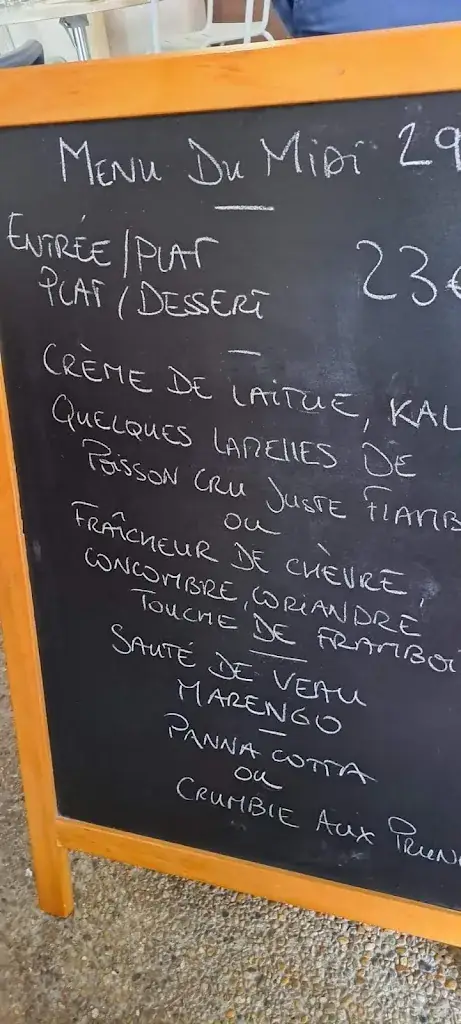 MENU DU MIDI 29
ENTRÉE/PLAT
PLAT/DESSERT
23€
CRÈME DE LAITUE, KAL
QUELQUES LAMELLES DE
POISSON CRU JUSTE FLAMB
OU
FRAÎCHEUR DE CHÈVRE,
CONCOMBRE, CORIANDRE
TOUCHE DE FRAMBOI
SAUTÉ DE VEAU
MARENGO
PANNA COTTA
OU
CRUMBLE AUX PRUN